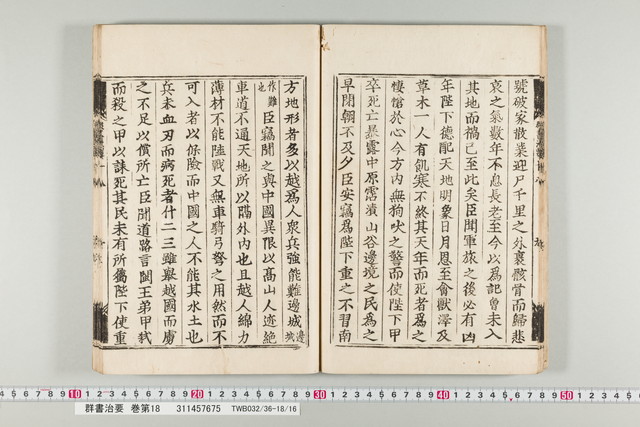 號破家散業迎尸千里之外裹骸骨而歸悲
哀之氣數年不息長老至今以爲記曾未入
其地而禍已至此矣臣聞軍旅之後必有凶
年陛下德配天地明象日月恩至禽獸澤及
草木一人有飢寒不終其天年而死者爲之
悽愴於心今方内無狗吠之警而使陛下甲
卒死亡暴露中原霑漬山谷邊境之民爲之
早閉朝不及夕臣安竊爲陛下重之不習南
方地形者多以越爲人衆兵強能難邊城邊城
作難也臣竊聞之與中國異限以髙山人迹絶
車道不通天地所以隔外内也且越人綿力
薄材不能陸戰又無車騎弓弩之用然而不
可入者以保險而中國之人不能其水土也
兵未血刃而病死者什二三雖舉越國而虜
之不足以償所亡臣聞道路言閩王弟甲弑
而殺之甲以誅死其民未有所屬陛下使重
10 20 30 40 50
群書治要 巻第18 311457675 TWB032/36-18/16